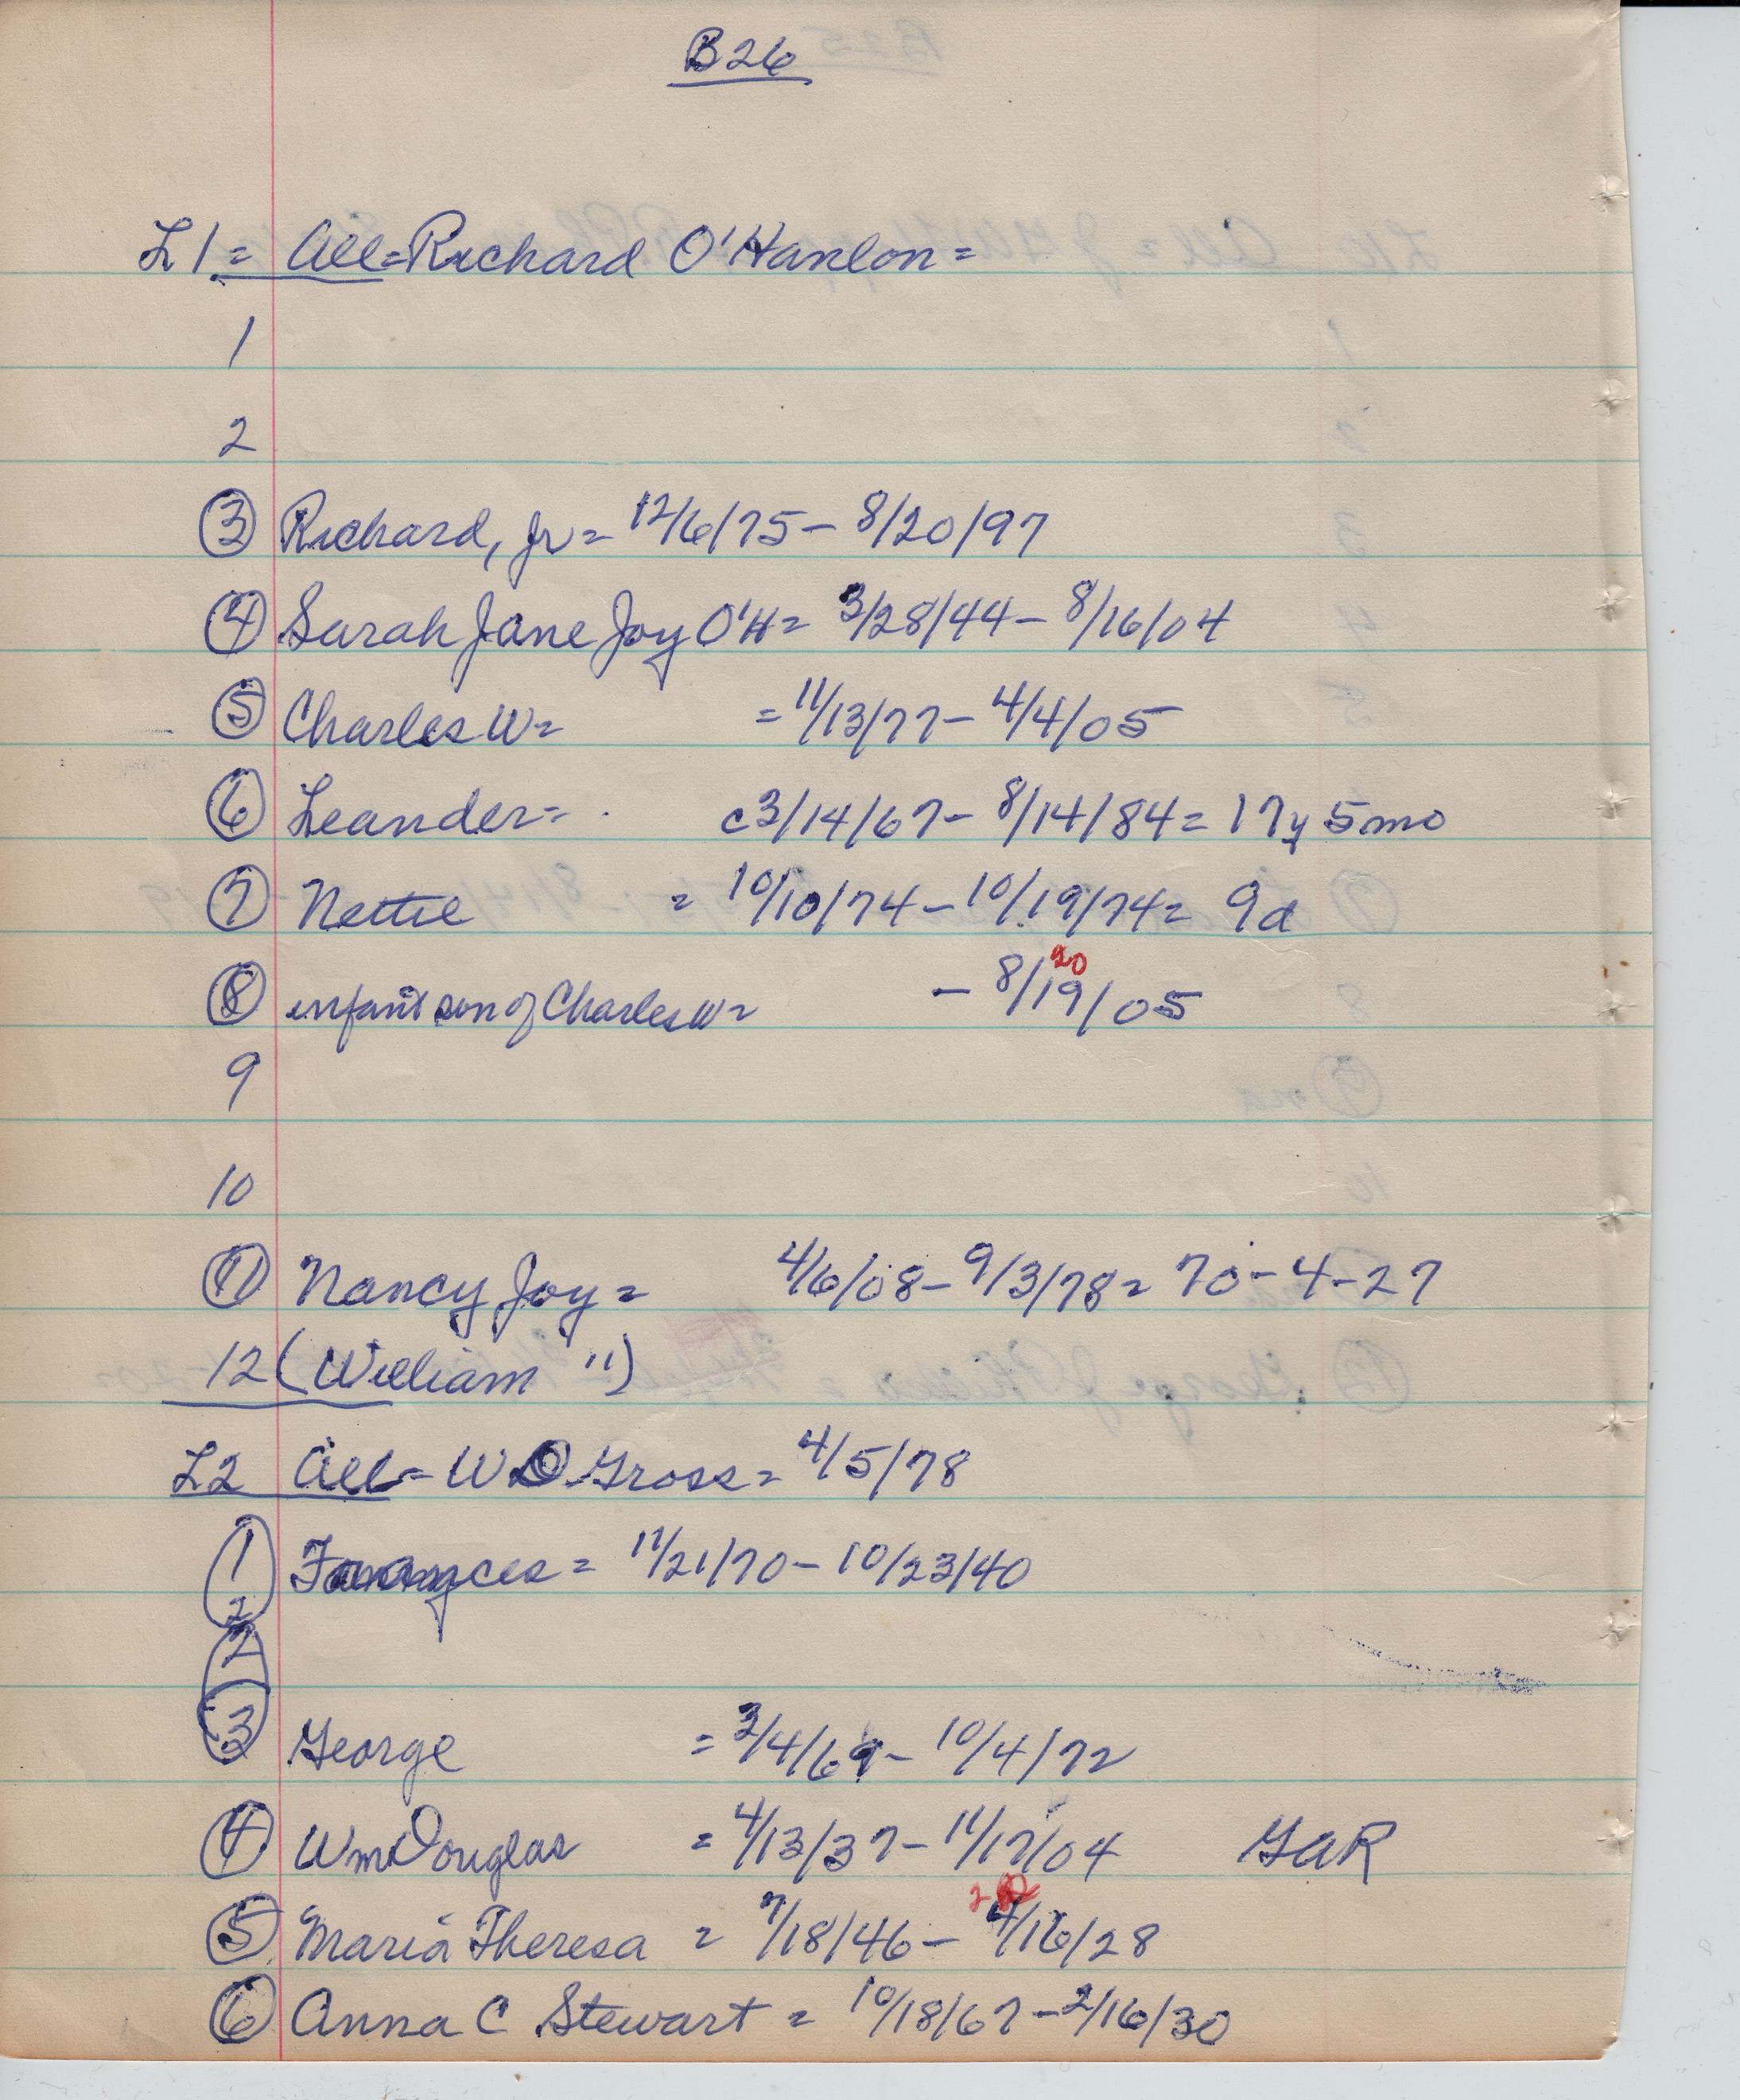 B26
L1 = All = Richard O'Hanlon =
1
2
3 Richard, Jr = 12/6/75 - 8/20/97
4 Sarah Jane Joy O'H = 3/28/44 - 8/16/04
5 Charles W = = 11/13/77 - 4/4/05
6 Leander = c3/14/67 - 8/14/84 = 17y 5mo
7 Nettie = 10/10/74 - 10/19/74 = 9d
20
8 infant son of Charles W = - 8/19/05
9
10
11 Nancy Joy = 4/6/08 - 9/3/78 = 70-4-27
12 (William ")
L2 All = W D Gross = 4/5/78
1 = 11/21/70 - 10/23/40
2
2
3 George = 3/4/69 - 10/4/72
4 Wm Douglas = 4/13/37 - 11/17/04 GAR
2
5 Maria Theresa = 7/18/46 - 4/16/28
6 Anna C Stewart = 10/18/67 - 2/16/30